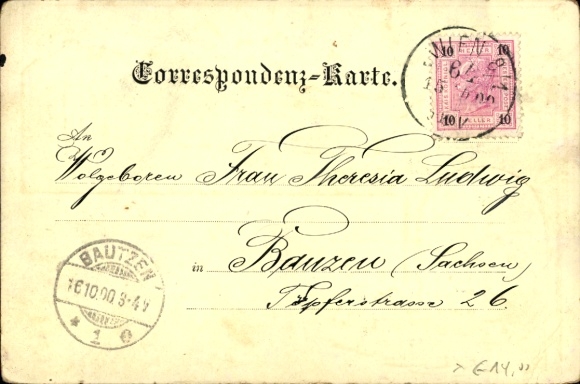 Correspondenz-Karte.
WIEN
10 HELLER 10
10 HELLER 10
An
Wolgeboren Frau Theresia Ludwig
in Bauzen (Sachsen)
Töpferstrasse 26
BAUTZEN
16.10.00 3-4 N
* 1 e
€ 14,00